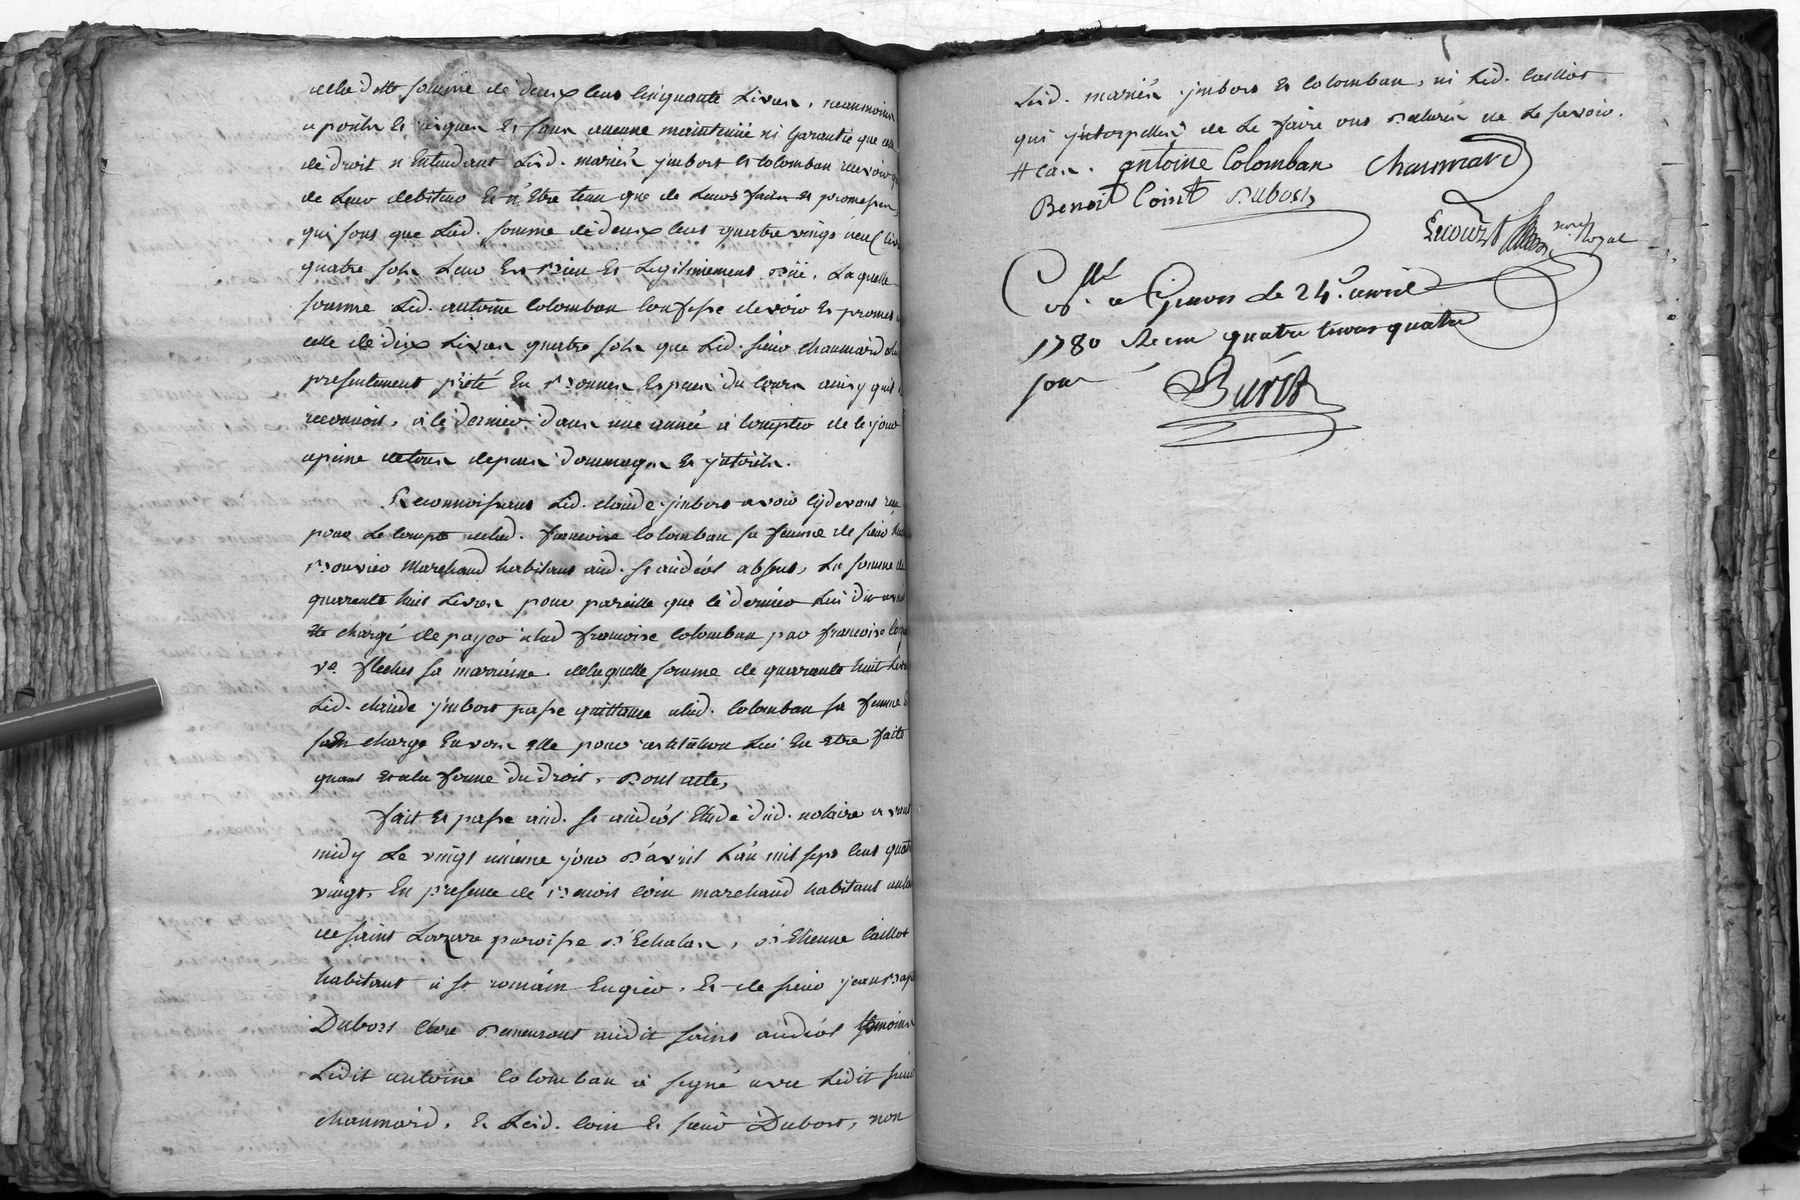 de lad.te somme de deux cens cinquante Livres, neanmoins
a perils et risques et sans aucune maintenüe ni Garantie que
de droit n'Entendant Lesd. mariés jmbert et colomban
de Leur debiteur Et n'Etre tenu que de Leurs faits et promesses,
qui font que Lad. somme de deux cens quatre vingt neuf Liv
quatre sols Leur Est Bien et Legitimement Düe. Laquelle
somme Led. antoine Colomban Confesse devoir et promet
celle de dix Livres quatre sols que Led. sieur chaumard
presentement prété En Bonnes Especes du Cours ainsy qu'il
reconnoit, à ce dernier dans une année à Compter de ce jour
a peine de tous depens dommages et jnterets.
Reconnoissant Led. claude jmbert avoir cydevant reçu
pour Le Compte de lad. francoise Colomban sa femme de sieur
Bouvier Marchand habitant aud. st andéol absent, La somme de
quarente huit Livres pour pareille que ce dernier Lui dit avoir
été chargé de payer a lad francoise Colomban par francoise
v.e fleches sa marraine de laquelle somme de quarente huit Livres
Led. claude jmbert passe quittance a lad. Colomban sa femme
s'en charge Envers Elle pour restitution Lui En être faite
quant et a la forme du droit, Dont acte,
fait et passé aud. st andéol Etude dud. notaire avant
midy Le vingt unieme jour D'avril L'an mil sept cens quatre
vingt, En presence de Benoit Coin marchand habitant au lieu
de saint Lazare paroisse D'Echalas, D'Etienne Caillot
habitant à st romain Engier, Et de sieur jean Bap
Dubost clerc Demeurant audit saint andéol témoins
Ledit antoine Colomban à signé avec Ledit sieur
chaumard, et Led. Coin et sieur Dubost, non
Lesd. mariés jmbert et Colomban, ni Led. Caillot
qui jnterpellés de Le faire ont Declaré ne Le savoir.
antoine Colomban chaumard
Benoit Coint Dubost
Lecourt nore Royal
C.llé a Givors Le 24e avril
1780 Recu quatre livres quatre
sous
Buret